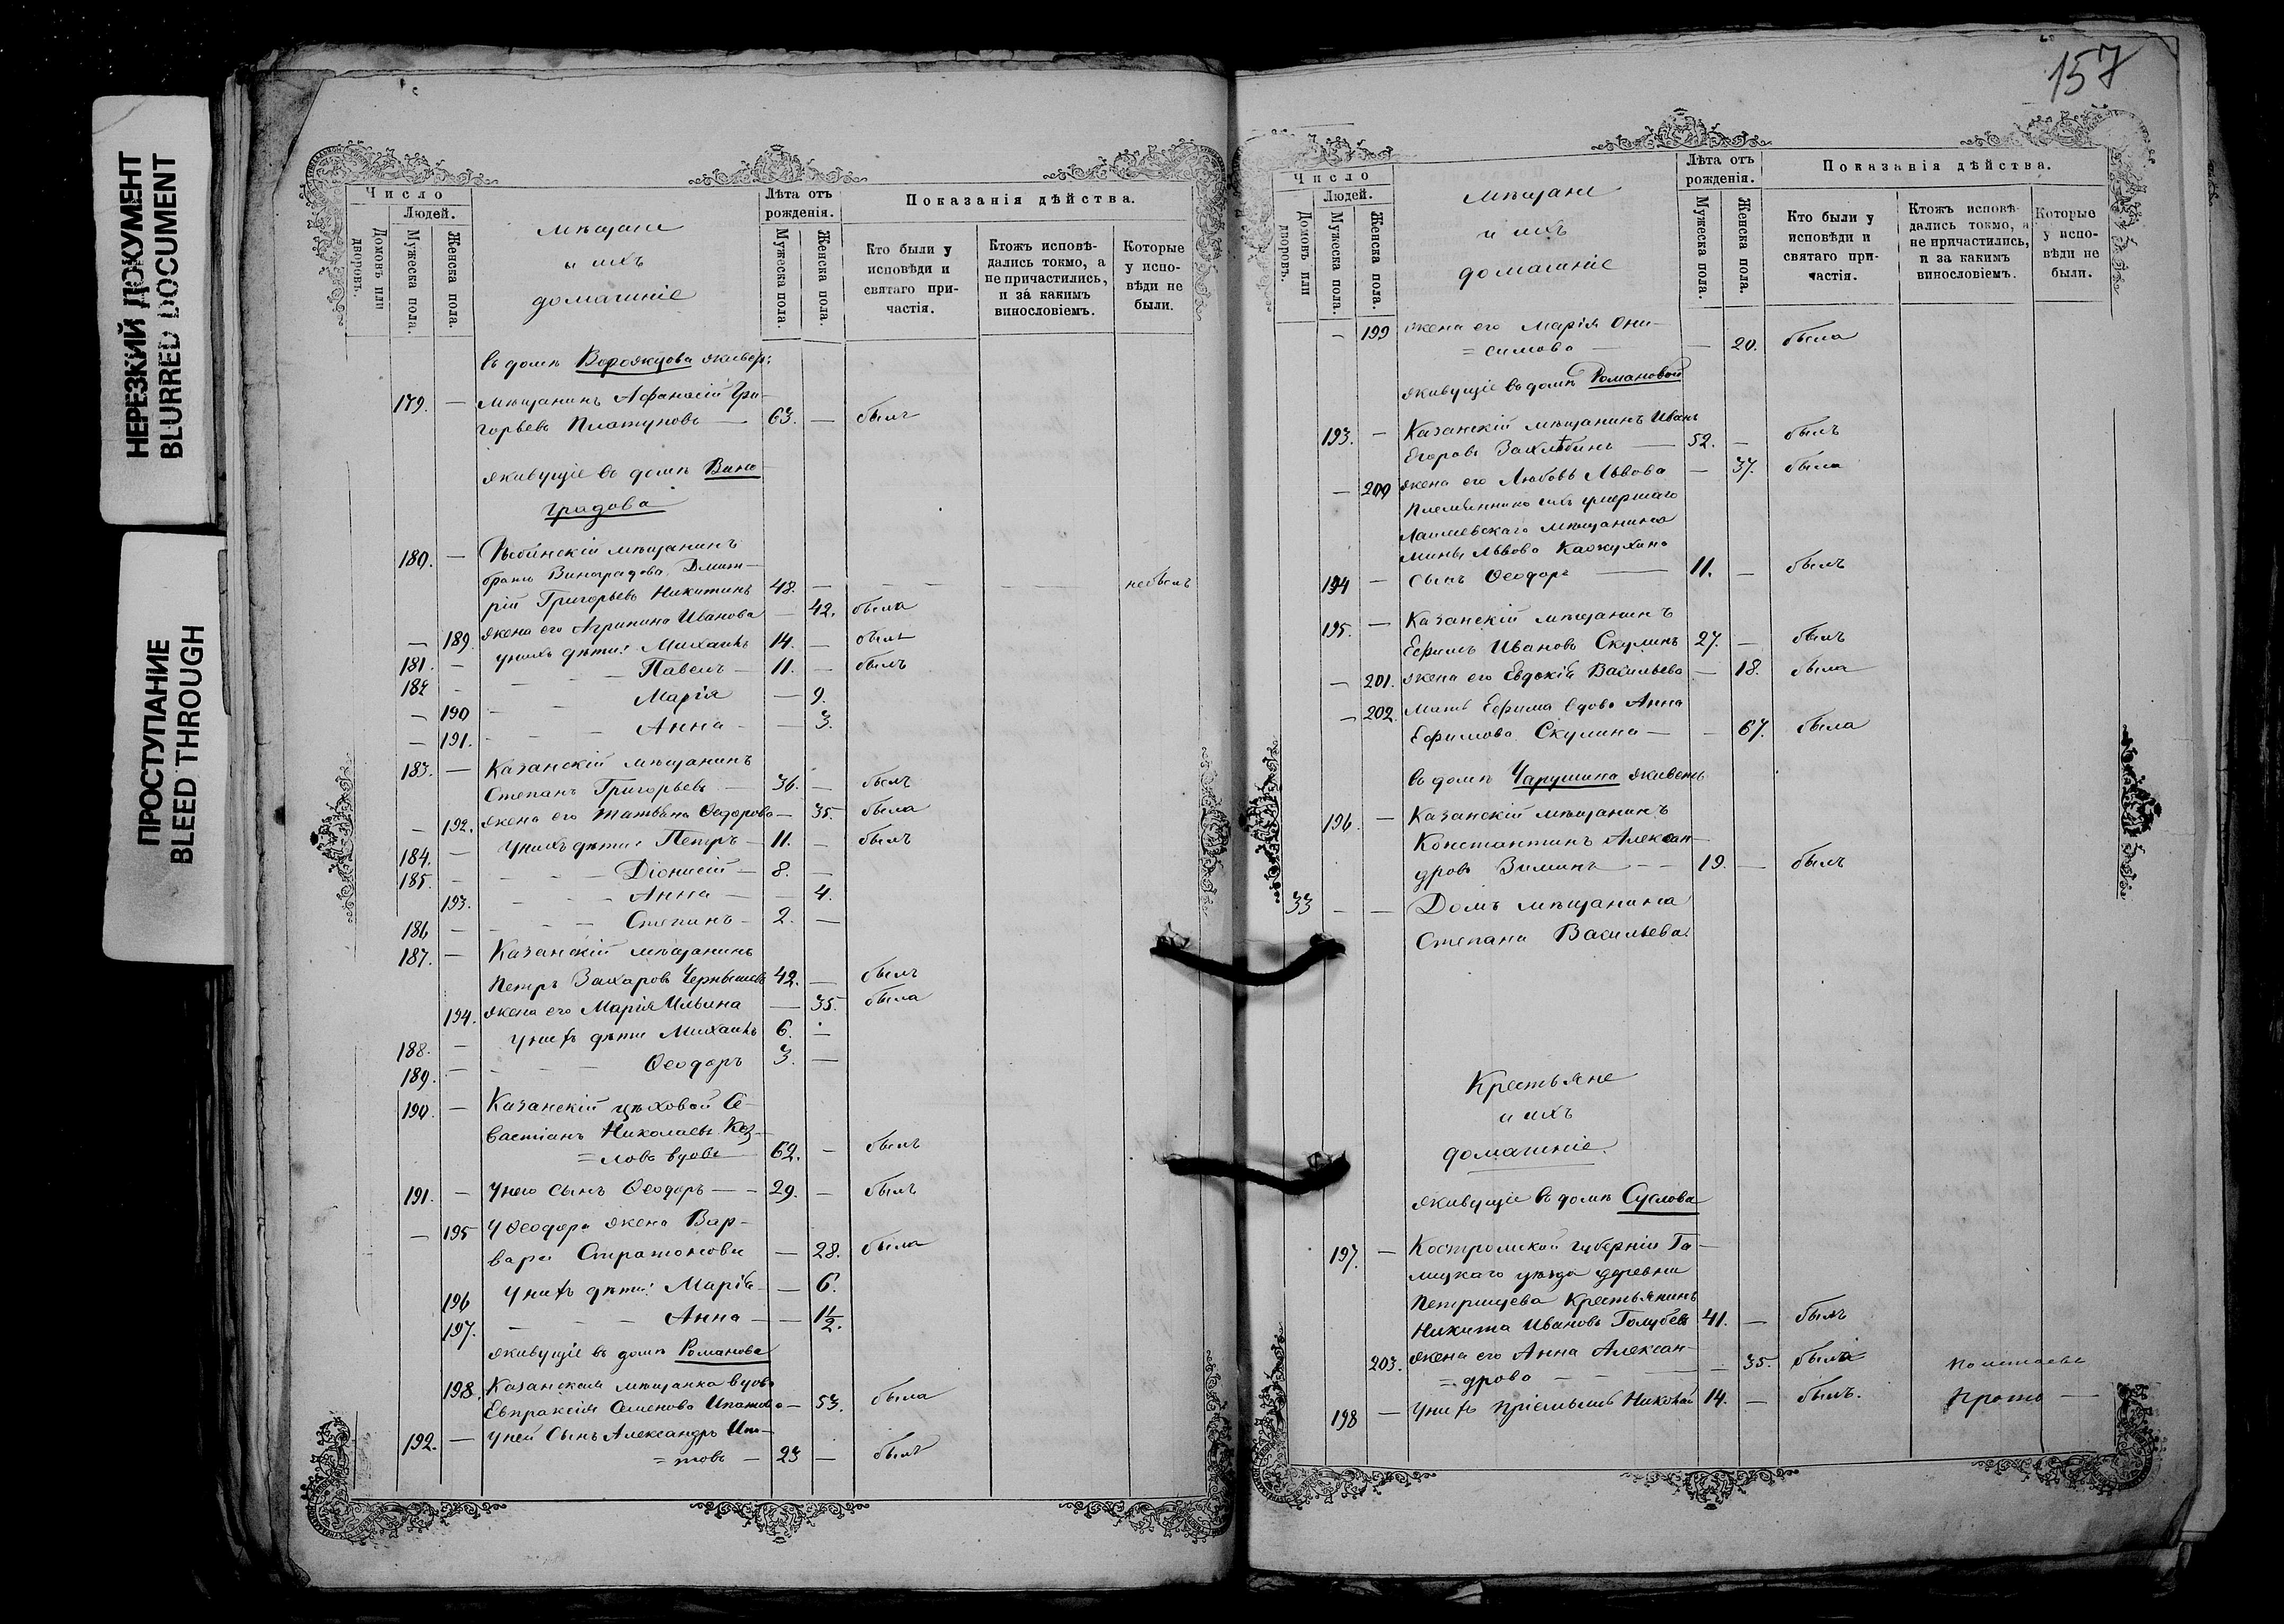 НЕРЕЗКИЙ ДОКУМЕНТ
BLURRED DOCUMENT
ПРОСТУПАНИЕ
BLEED THROUGH
Число
Людей.
Домовъ или дворовъ.
Мужеска пола.
Женска пола.
Мѣщане
и ихъ
домашніе
Лѣта отъ рожденія.
Мужеска пола.
Женска пола.
Показанія дѣйства.
Кто были у исповѣди и святаго причастія.
Ктожъ исповѣдались токмо, а не причастились, и за какимъ винословіемъ.
Которые у исповѣди не были.
въ домѣ Ворожцова живер:
179. — Мѣщанинъ Афанасій Гри-
горьевъ Платуновъ — 63. — былъ
живущіе въ домѣ Вино-
градова
180. — Рыбинскій мѣщанинъ
братъ Виноградова Дмит-
рій Григорьевъ Никитинъ 48. — — — — небылъ
— 189 жена его Агрипина Иванова — 42. была
181. — у нихъ дѣти: Михаилъ 14. — былъ
182 — Павелъ — 11. — былъ
— 190 Марія — 9.
— 191. Анна — — 3.
183. — Казанскій мѣщанинъ
Степанъ Григорьевъ — 36. — былъ
— 192. жена его Татьяна Ѳеодорова — 35. была
184. — у нихъ дѣти: Петръ — 11. — былъ
185. — Діонисій — 8. —
193. Анна — — 4.
186 — Степанъ — 2. —
187. — Казанскій мѣщанинъ
Петръ Захаровъ Чернышевъ 42. — былъ
194. жена его Марія Ильина — 35. была
188. — у нихъ дѣти Михаилъ 6. —
189. — Ѳеодоръ 3. —
190. — Казанскій цѣховой Се-
вастіанъ Николаевъ Коз-
= ловъ вдовъ 62. — былъ
191. — У него сынъ Ѳеодоръ — — 29. — былъ
— 195 У Ѳеодора жена Вар-
вара Стратонова — 28. была
196 У нихъ дѣти: Марія — — 6.
197. Анна — — 1½.
живущіе въ домѣ Романова
198. Казанская мѣщанка вдова
Евпраксія Семенова Ипатова — 53. была
192. — У ней сынъ Александръ Ипа-
= товъ — 23 — былъ
157
Число
Людей.
Домовъ или дворовъ.
Мужеска пола.
Женска пола.
Мѣщане
и ихъ
домашніе
Лѣта отъ рожденія.
Мужеска пола.
Женска пола.
Показанія дѣйства.
Кто были у исповѣди и святаго причастія.
Ктожъ исповѣдались токмо, а не причастились, и за какимъ винословіемъ.
Которые у исповѣди не были.
— 199 жена его Марія Они-
= симова — — 20. была
живущіе въ домѣ Романовой
193. — Казанскій мѣщанинъ Иванъ
Егоровъ Захлѣбинъ — 52. — былъ
— 200 жена его Любовь Львова — 37. была
Племянникъ ихъ умершаго
Лаишевскаго мѣщанина
Мины Львова Кожухина
194 — сынъ Ѳеодоръ — 11. — былъ
195. — Казанскій мѣщанинъ
Ефимъ Ивановъ Скулинъ 27. — былъ
— 201. жена его Евдокія Васильева — 18. была
— 202. Мать Ефима вдова Анна
Ефимова Скулина — — 67. была
въ домѣ Чарушина живетъ
196 — Казанскій мѣщанинъ
Константинъ Алексан-
дровъ Зиминъ — — 19. — былъ
33 — — Домъ мѣщанина
Степана Васильева.
Крестьяне
и ихъ
домашніе.
живущіе въ домѣ Суслова
197. — Костромской губерніи Га-
лицкаго уѣзда деревни
Петрищева крестьянинъ
Никита Ивановъ Голубевъ 41. — былъ
203. жена его Анна Алексан-
= дрова — — — 35. была
198 — У нихъ пріемышъ Николай 14. — былъ.